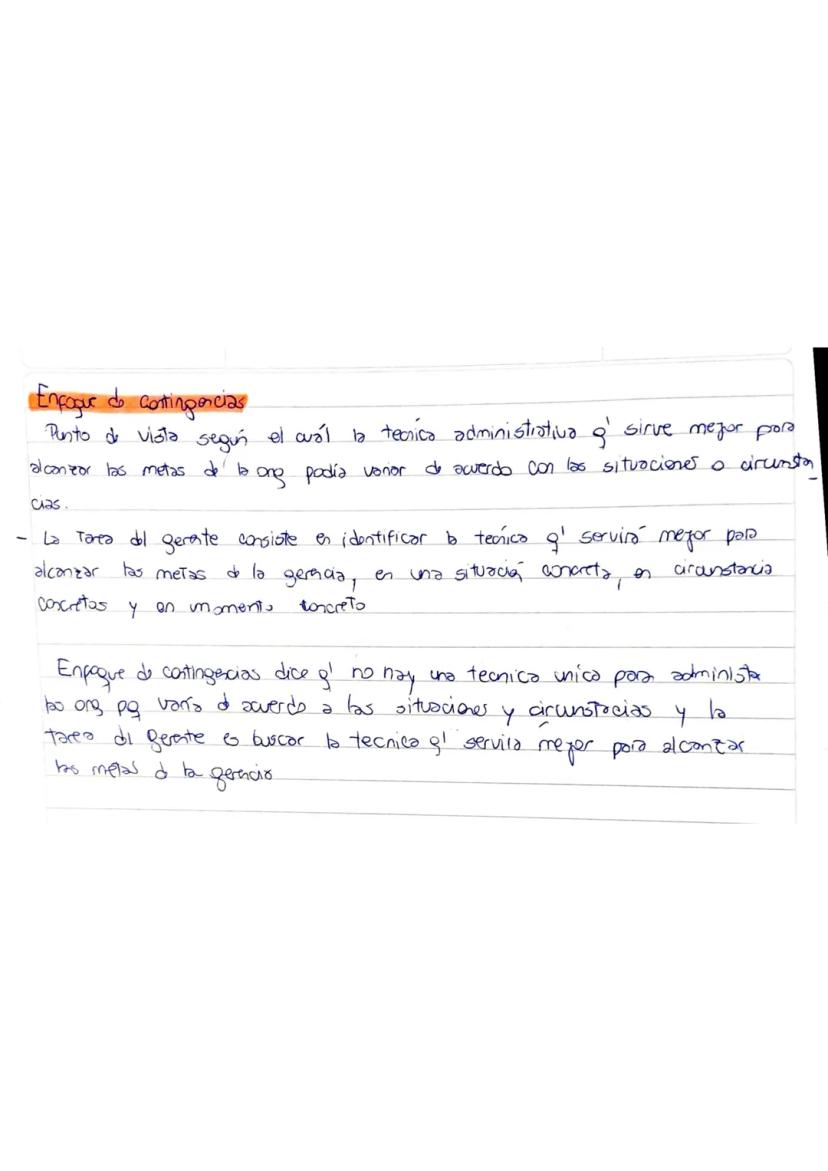 Enfoque de contingencias
Punto de vista según el cuál la tecnica administrativa q' sirve mejor para
alcanzar las metas de la org podía variar de acuerdo con las situaciones o circunstan
cias.
- La Tarea del gerente consiste en identificar la tecnica q' servirá mejor para
alcanzar las metas de la gerencia, en una situación concreta, en circunstancia
concretas y en momento concreto
Enfoque de contingencias dice q' no hay una tecnica unica para administra
las org pq varía d acuerdo a las situaciones y circunstacias y la
tarea dl gerente es buscar la tecnica q' servira mejor para alcanzar
las metas d la gerencia